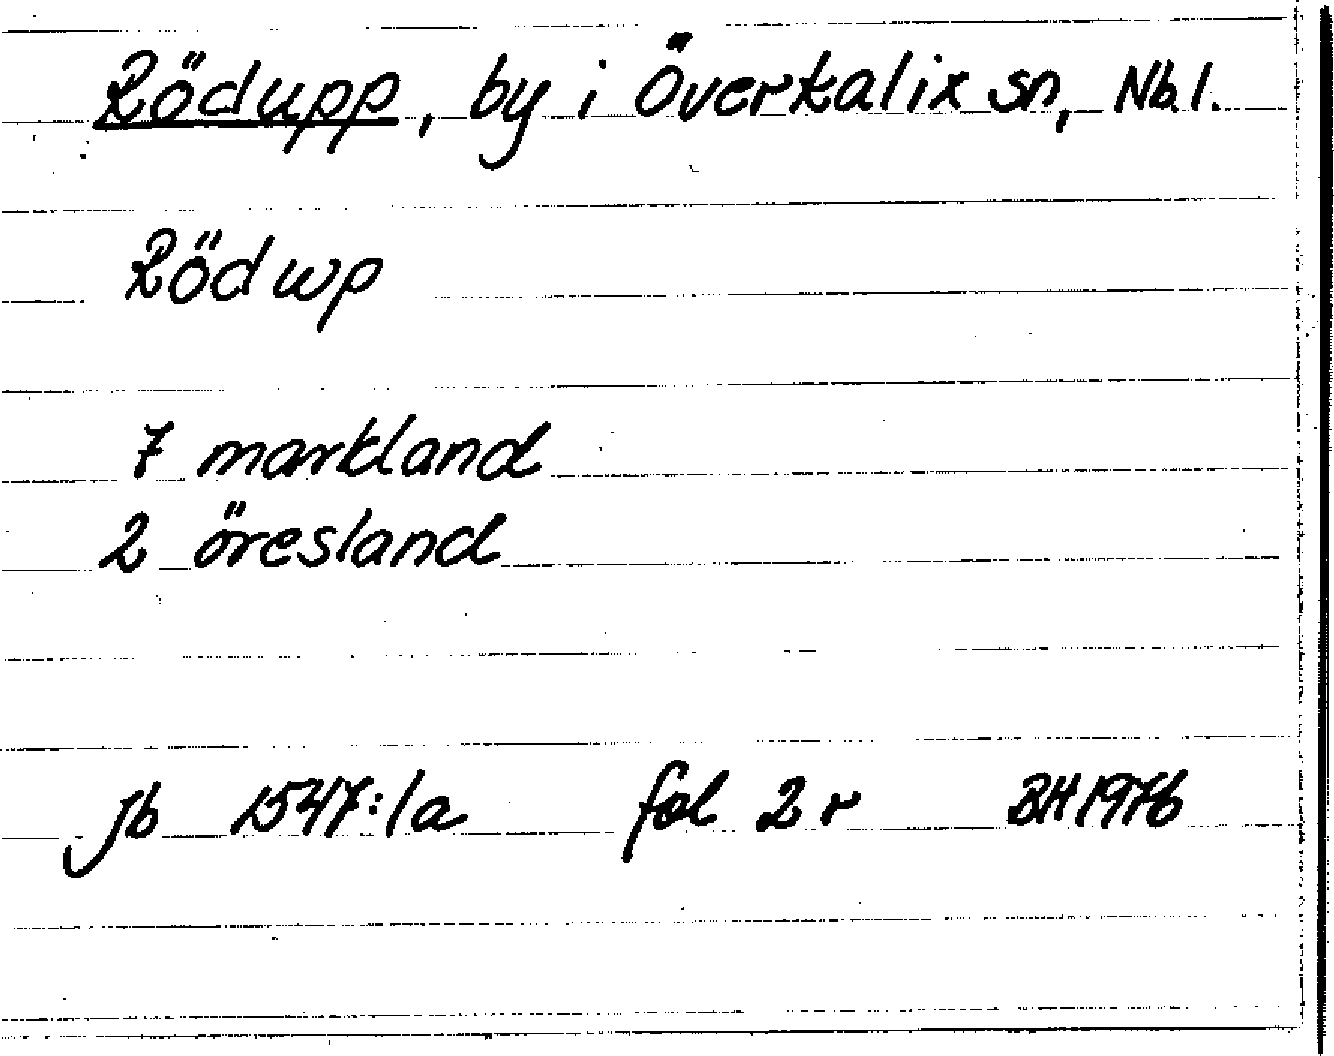 Rödupp, by i Överkalix sn, Nb.l.
Rödwp
7 markland
2 öresland
Jb 1547:1a fol 2r BH 1976